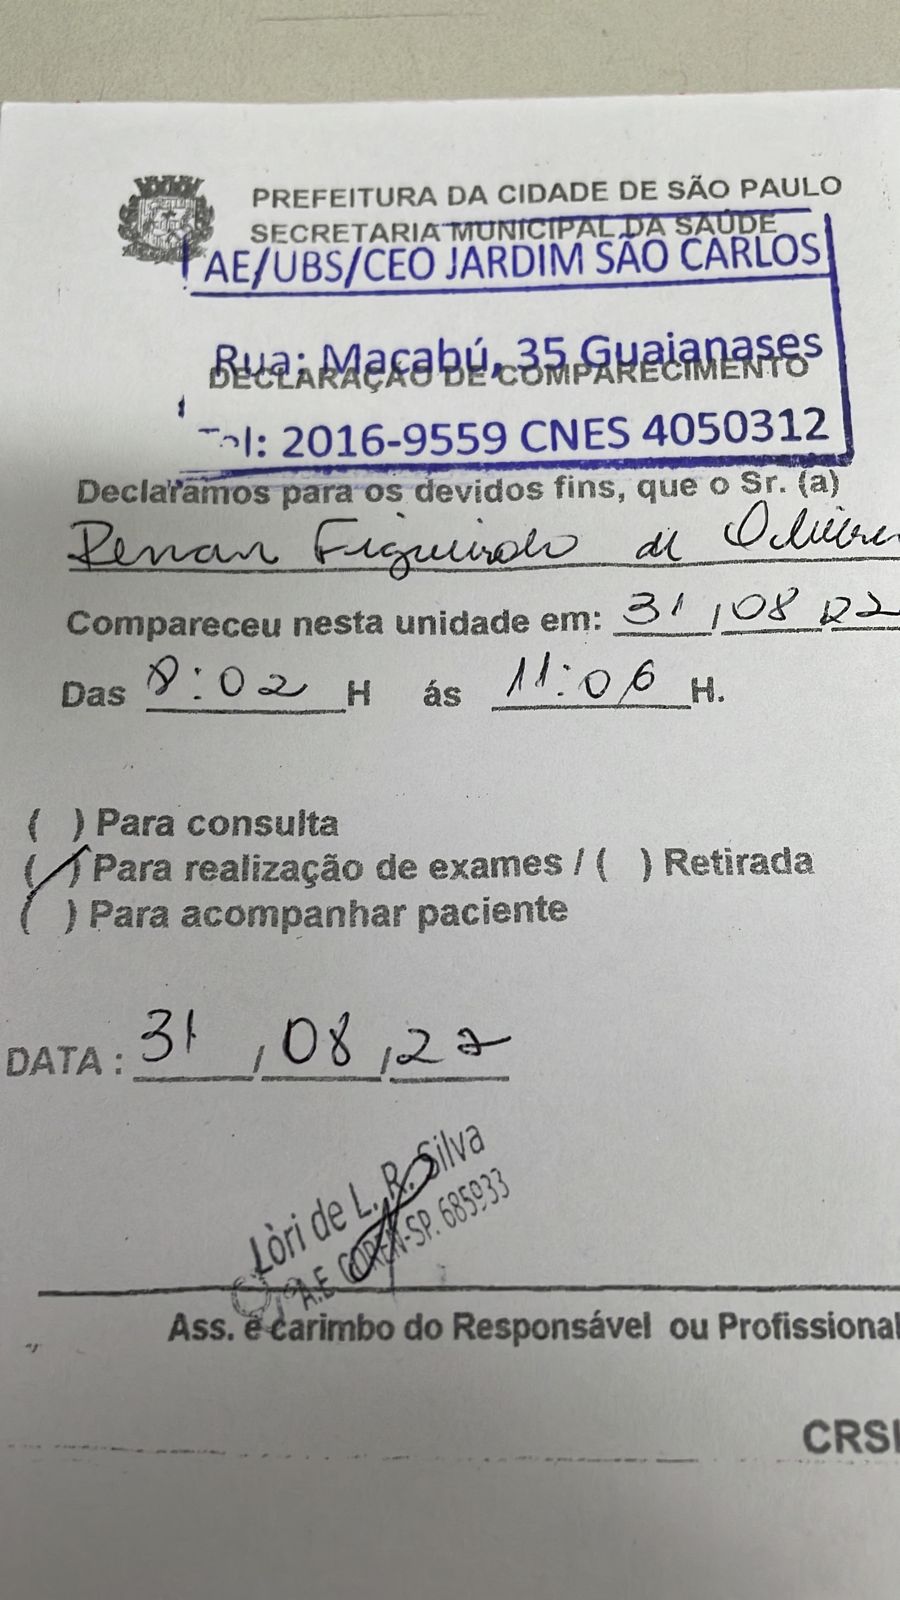 PREFEITURA DA CIDADE DE SÃO PAULO
SECRETARIA MUNICIPAL DA SAÚDE
AE/UBS/CEO JARDIM SÃO CARLOS
Rua: Macabú, 35 Guaianases
DECLARAÇÃO DE COMPARECIMENTO
Tel: 2016-9559 CNES 4050312
Declaramos para os devidos fins, que o Sr. (a)
Renan Figueiredo de
Compareceu nesta unidade em: 31/08/22
Das 8:02 H ás 11:06 H.
( ) Para consulta
(/) Para realização de exames / ( ) Retirada
( ) Para acompanhar paciente
DATA: 31/08/22
Lòri de L. R. Silva
A.E COREN-SP. 685933
Ass. e carimbo do Responsável ou Profissional